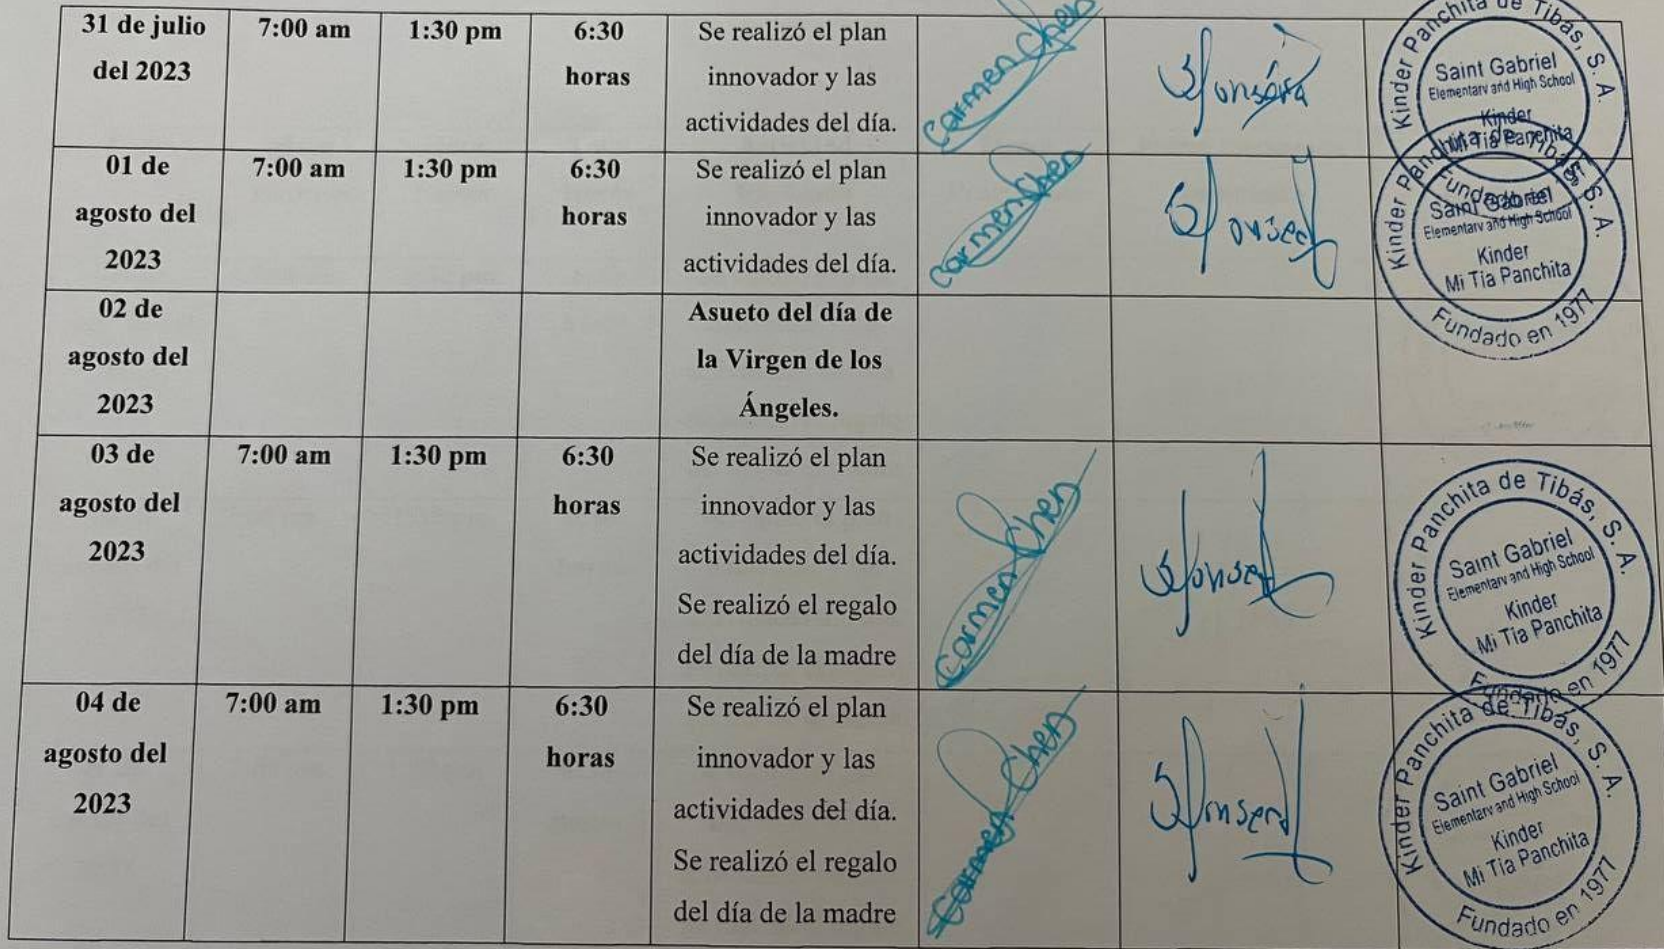 31 de julio
del 2023
7:00 am
1:30 pm
6:30
horas
Se realizó el plan
innovador y las
actividades del día.
Carmen Chen
Kinder Panchita de Tibás, S. A.
Saint Gabriel
Elementary and High School
Kinder
Mi Tía Panchita
01 de
agosto del
2023
7:00 am
1:30 pm
6:30
horas
Se realizó el plan
innovador y las
actividades del día.
Carmen Chen
Kinder Panchita de Tibás, S. A.
Saint Gabriel
Elementary and High School
Kinder
Mi Tía Panchita
Fundado en 1977
02 de
agosto del
2023
Asueto del día de
la Virgen de los
Ángeles.
03 de
agosto del
2023
7:00 am
1:30 pm
6:30
horas
Se realizó el plan
innovador y las
actividades del día.
Se realizó el regalo
del día de la madre
Carmen Chen
Kinder Panchita de Tibás, S. A.
Saint Gabriel
Elementary and High School
Kinder
Mi Tía Panchita
Fundado en 1977
04 de
agosto del
2023
7:00 am
1:30 pm
6:30
horas
Se realizó el plan
innovador y las
actividades del día.
Se realizó el regalo
del día de la madre
Carmen Chen
Kinder Panchita de Tibás, S. A.
Saint Gabriel
Elementary and High School
Kinder
Mi Tía Panchita
Fundado en 1977